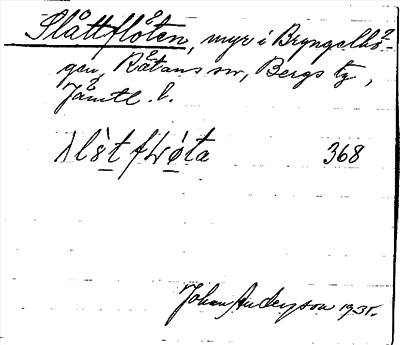 Slåttflöten, myr i Bryngelhö-
gen, Råtans sn, Bergs tg,
Jämtl. l.
368
Johan Anderson 1935.